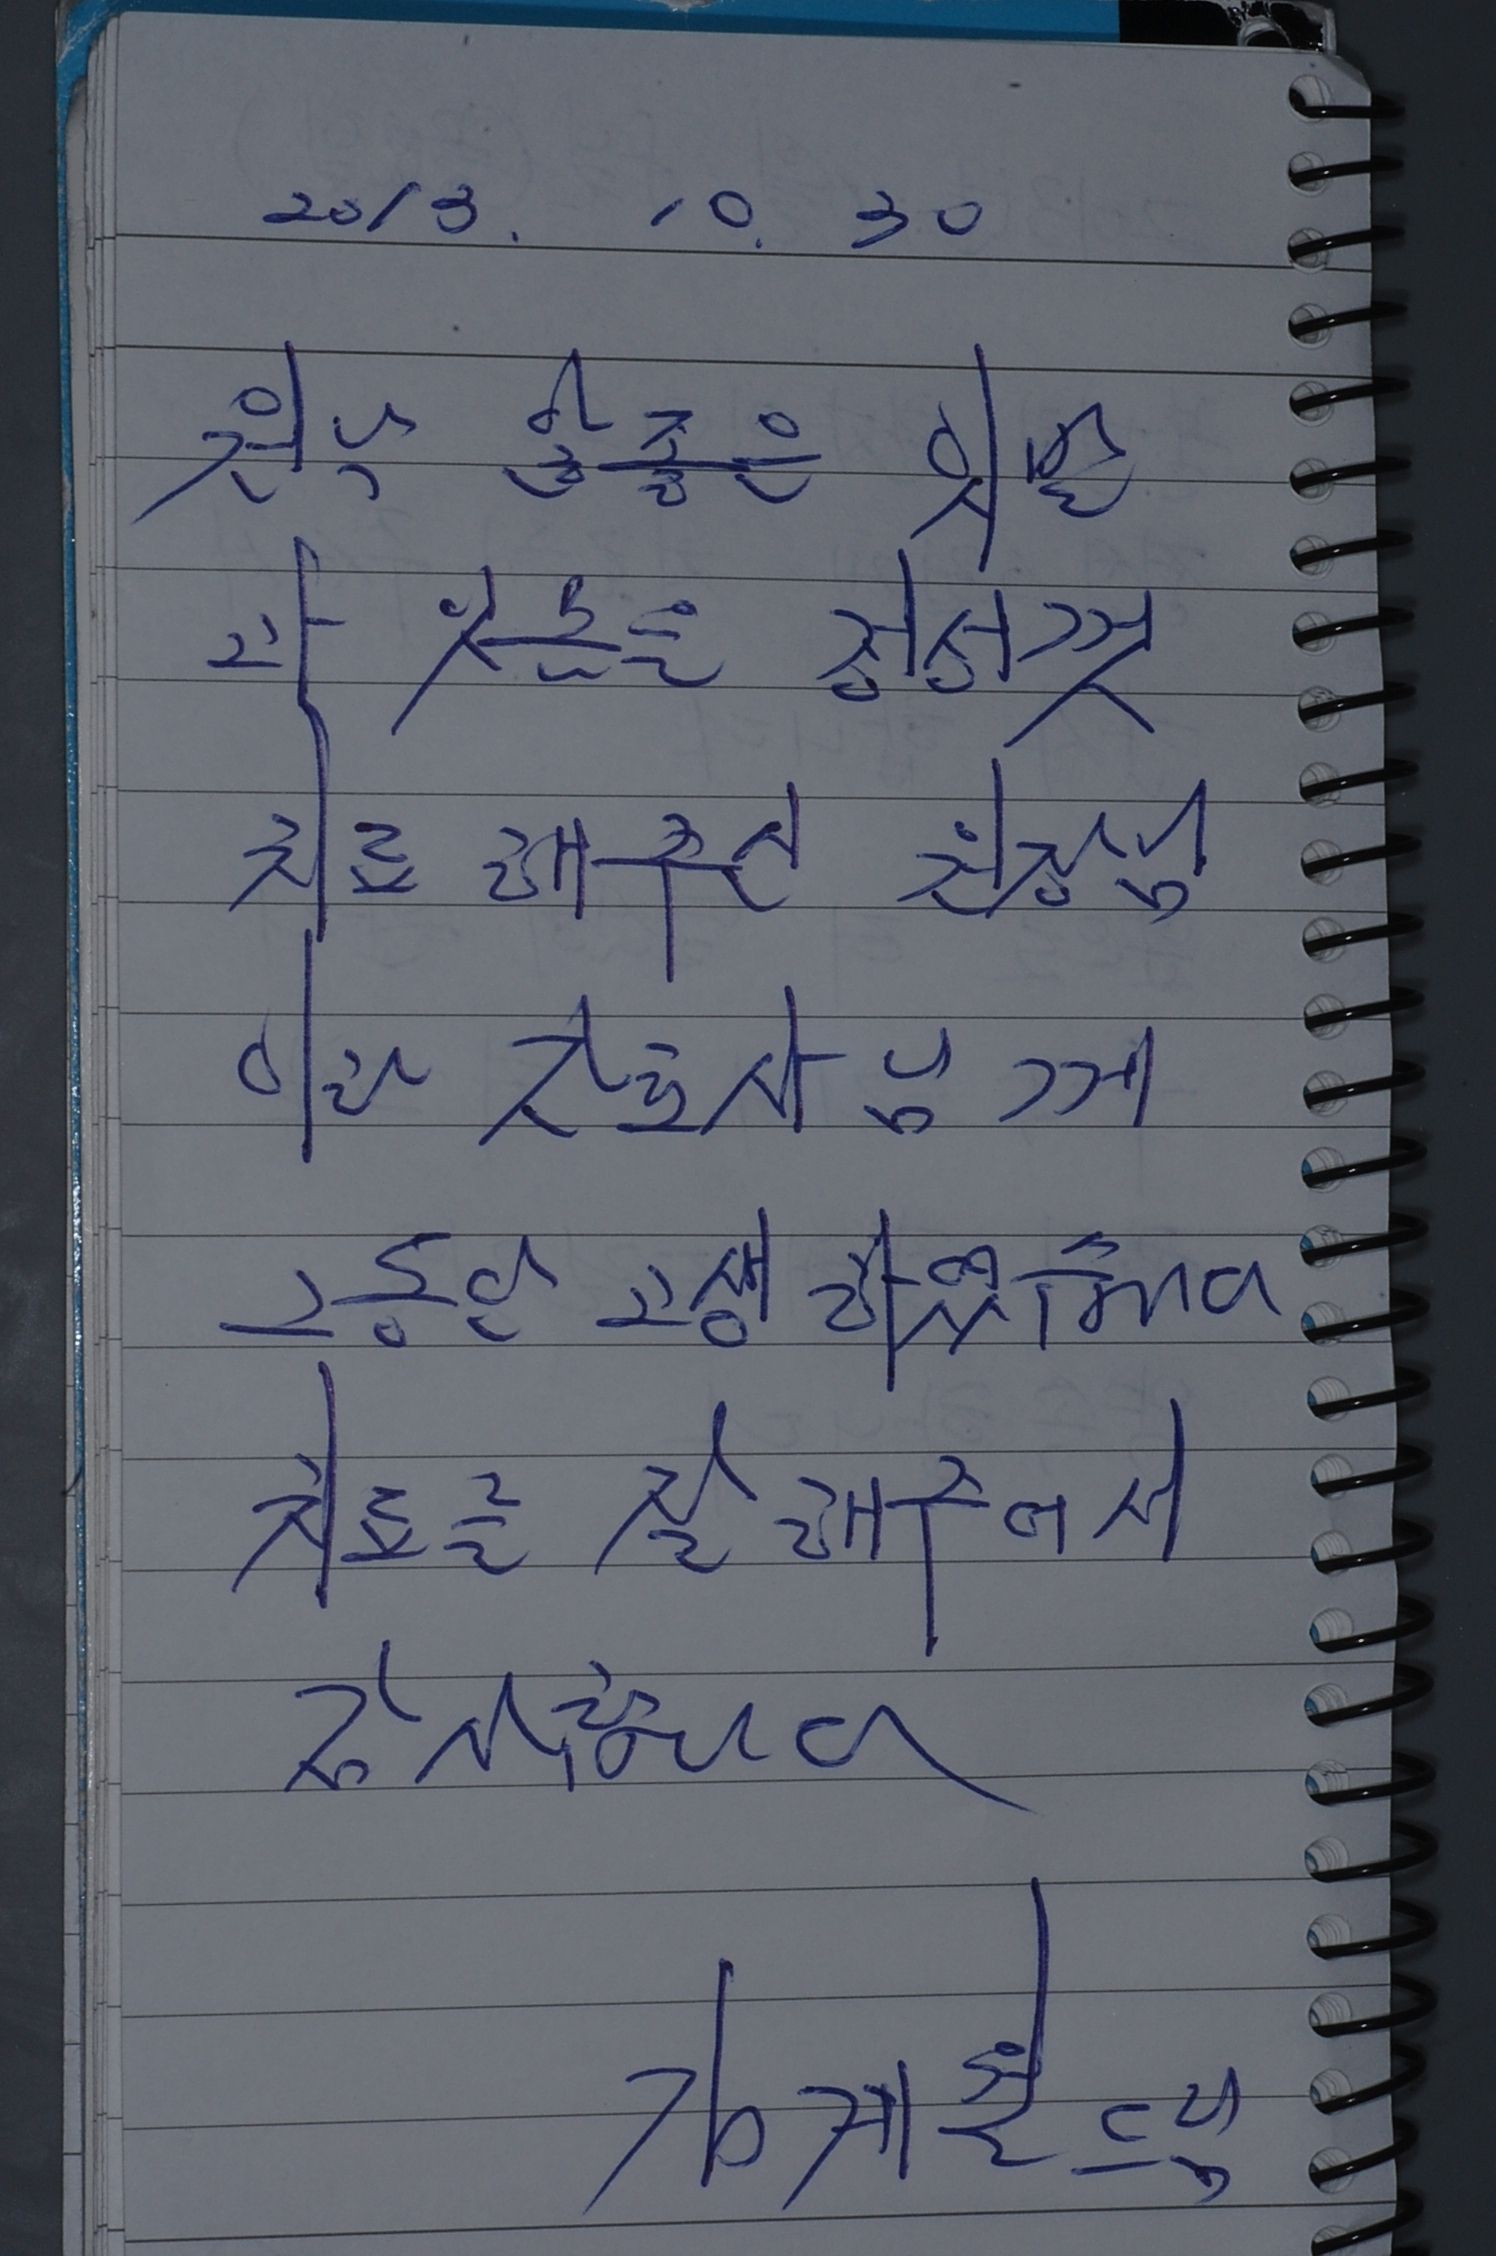 2013. 10. 30
원낙 안좋은 잇빨
과 잇몸을 정성껏
치료 해주신 원장님
이라 간호사님께
그동안 고생 하였습니다
치료를 잘 해주어서
감사합니다
김계월 드림